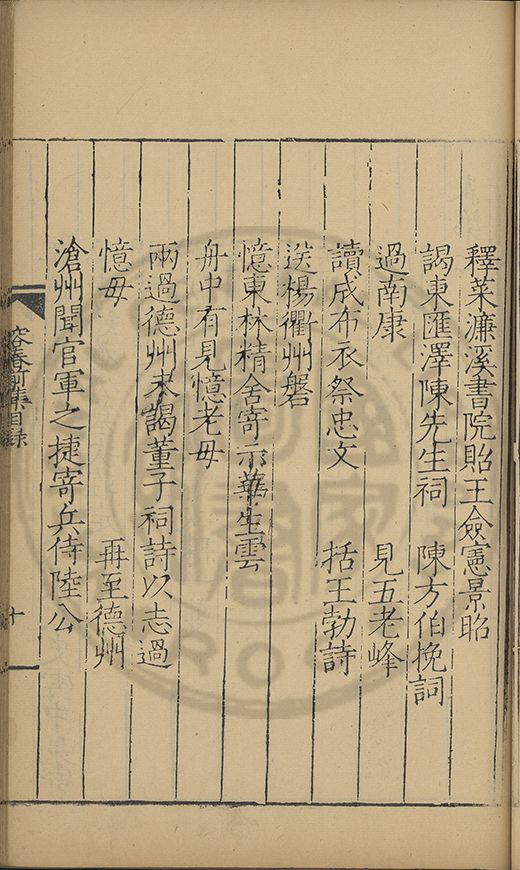 釋菜濂溪書院貽王僉憲景昭
謁東匯澤陳先生祠　陳方伯挽詞
過南康　見五老峰
讀成布衣祭忠文　括王勃詩
送楊衢州磐
憶東林精舍寄示華生雲
舟中有見憶老母
兩過德州未謁董子祠詩以志過
憶母　再至德州
滄州聞官軍之捷寄兵侍陸公
容春前集目錄　十